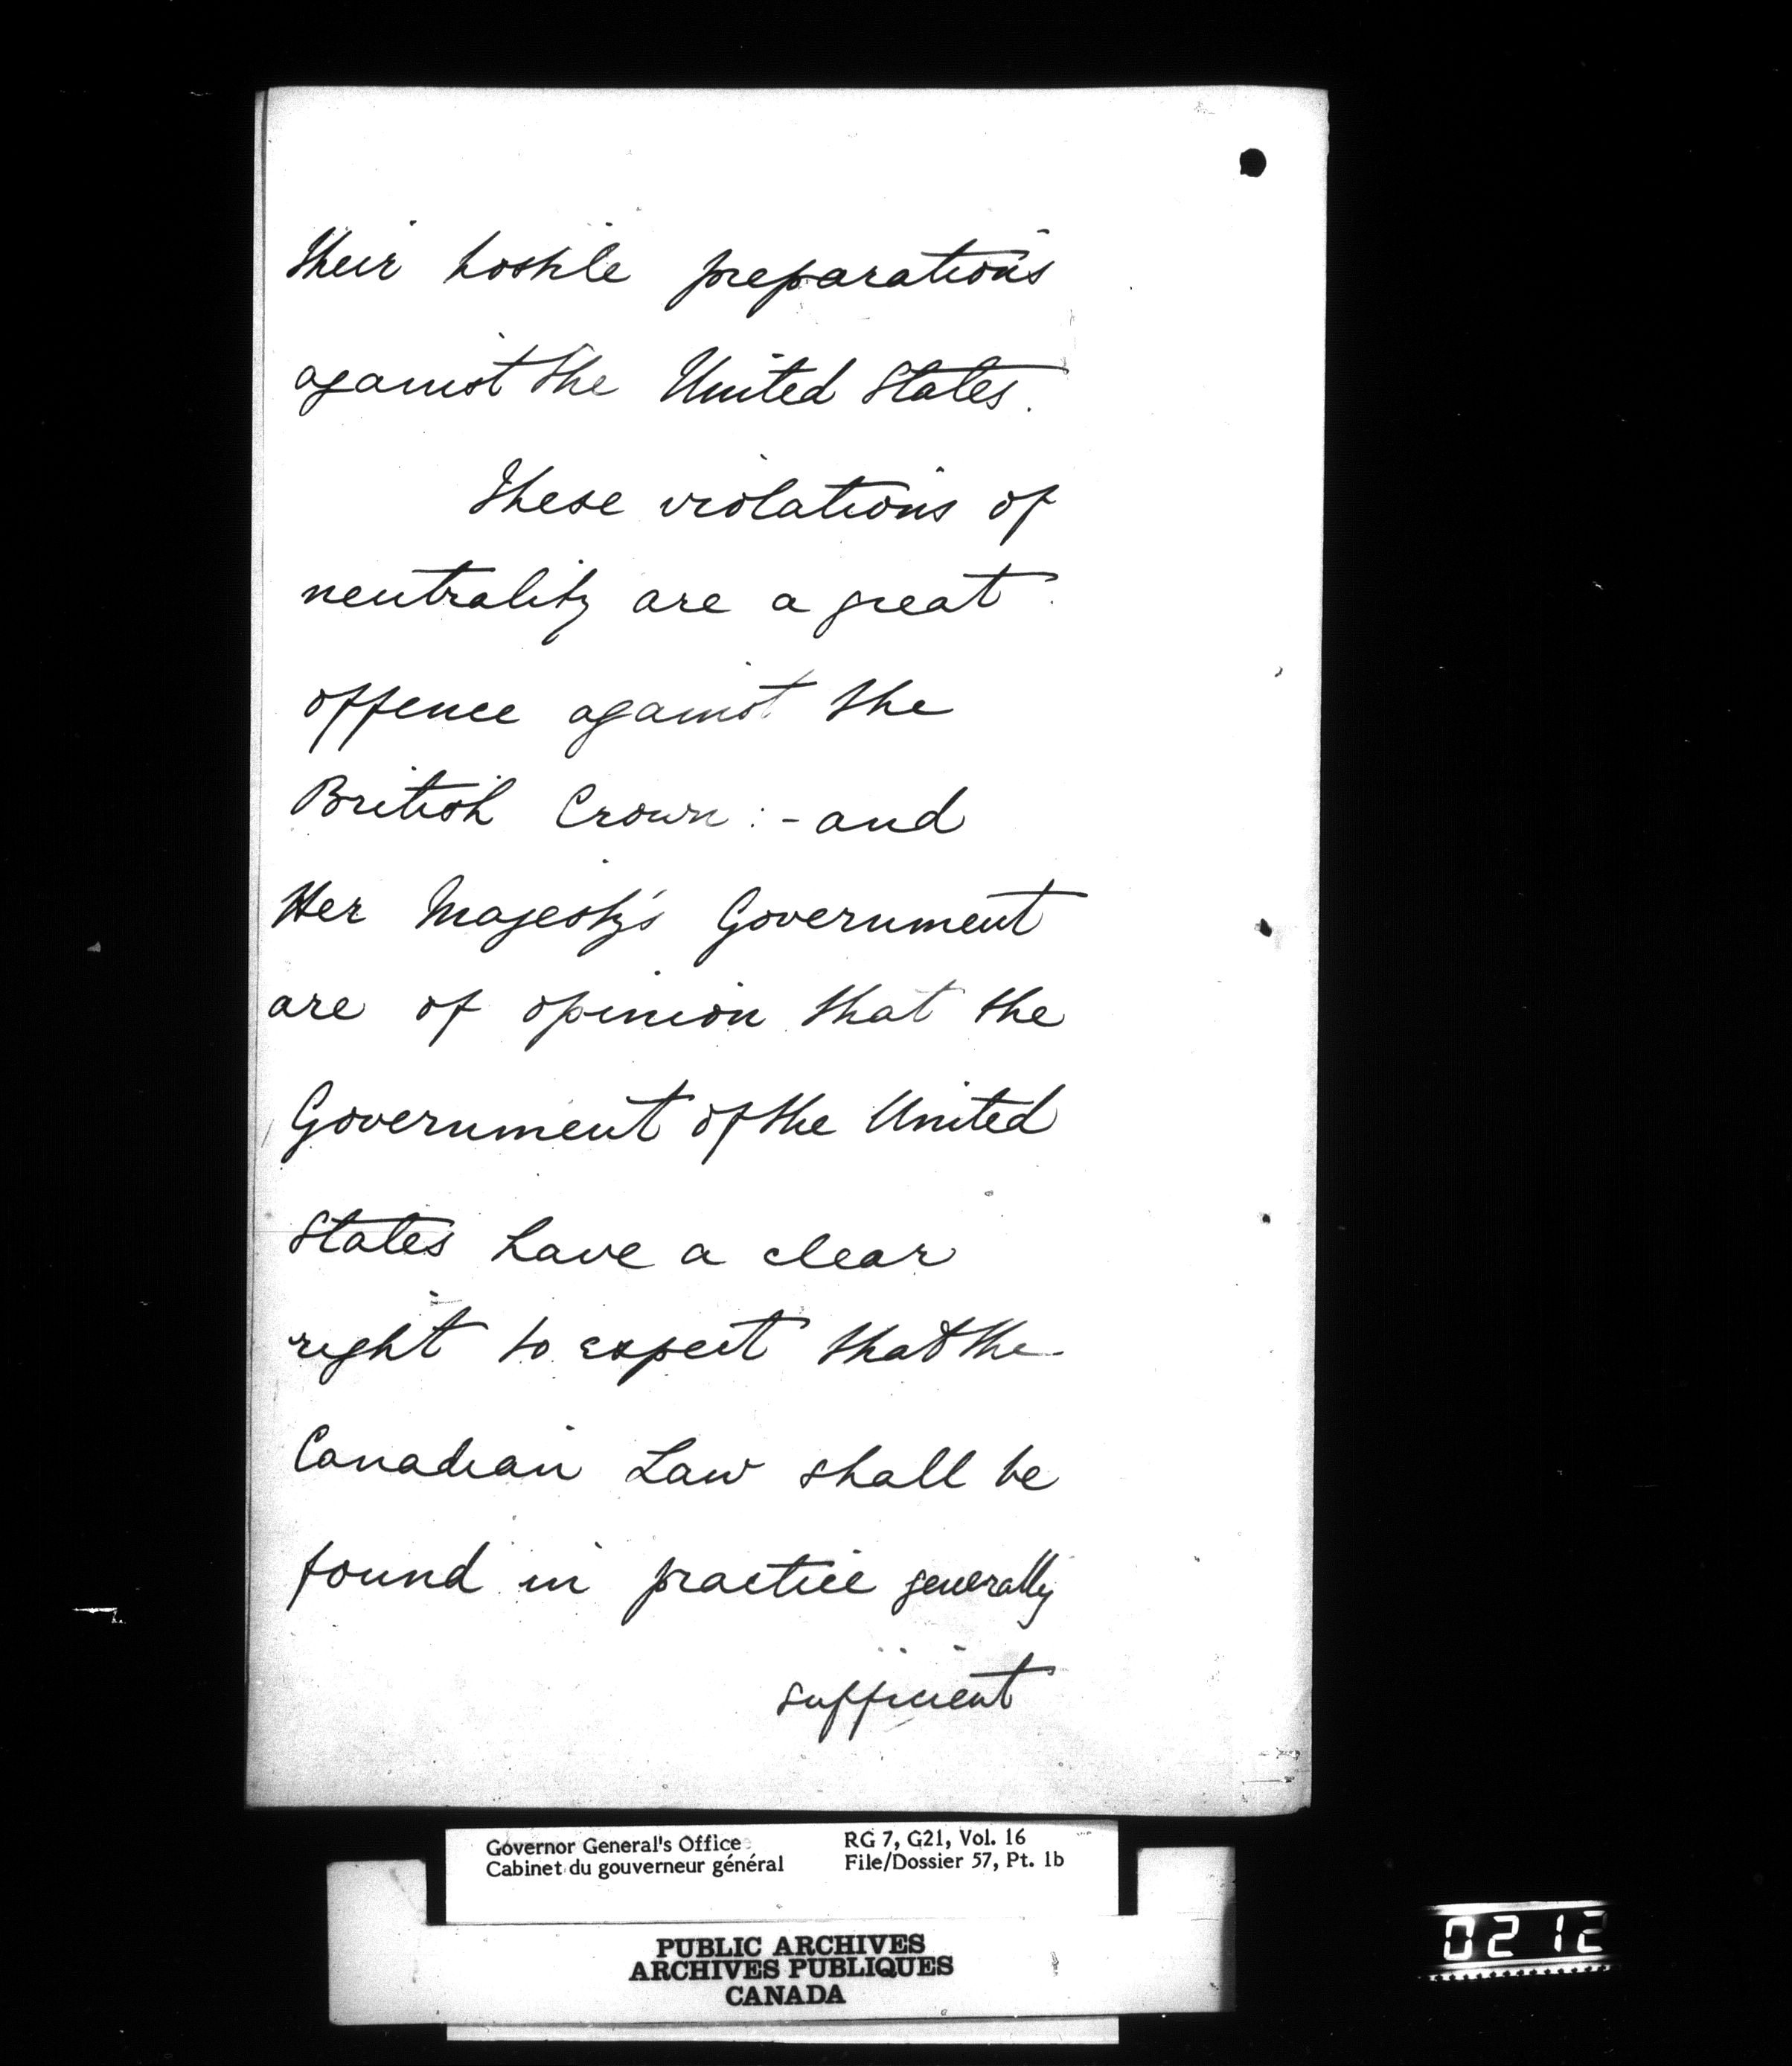 their hostile preparations
against the United States.
These violations of
neutrality are a great
offence against the
British Crown :- and
Her Majesty's Government
are of opinion that the
Government of the United
States have a clear
right to expect that the
Canadian Law shall be
found in practice generally
sufficient
Governor General's Office RG 7, G21, Vol. 16
Cabinet du gouverneur général File/Dossier 57, Pt. 1b
PUBLIC ARCHIVES
ARCHIVES PUBLIQUES
CANADA
0212